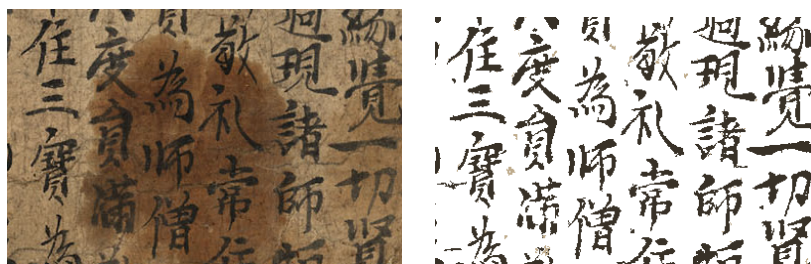 覺一切賢
現諸師
敬礼常住
為師僧
度員滿
住三寶為
覺一切賢
現諸師
敬礼常住
為師僧
度員滿
住三寶為